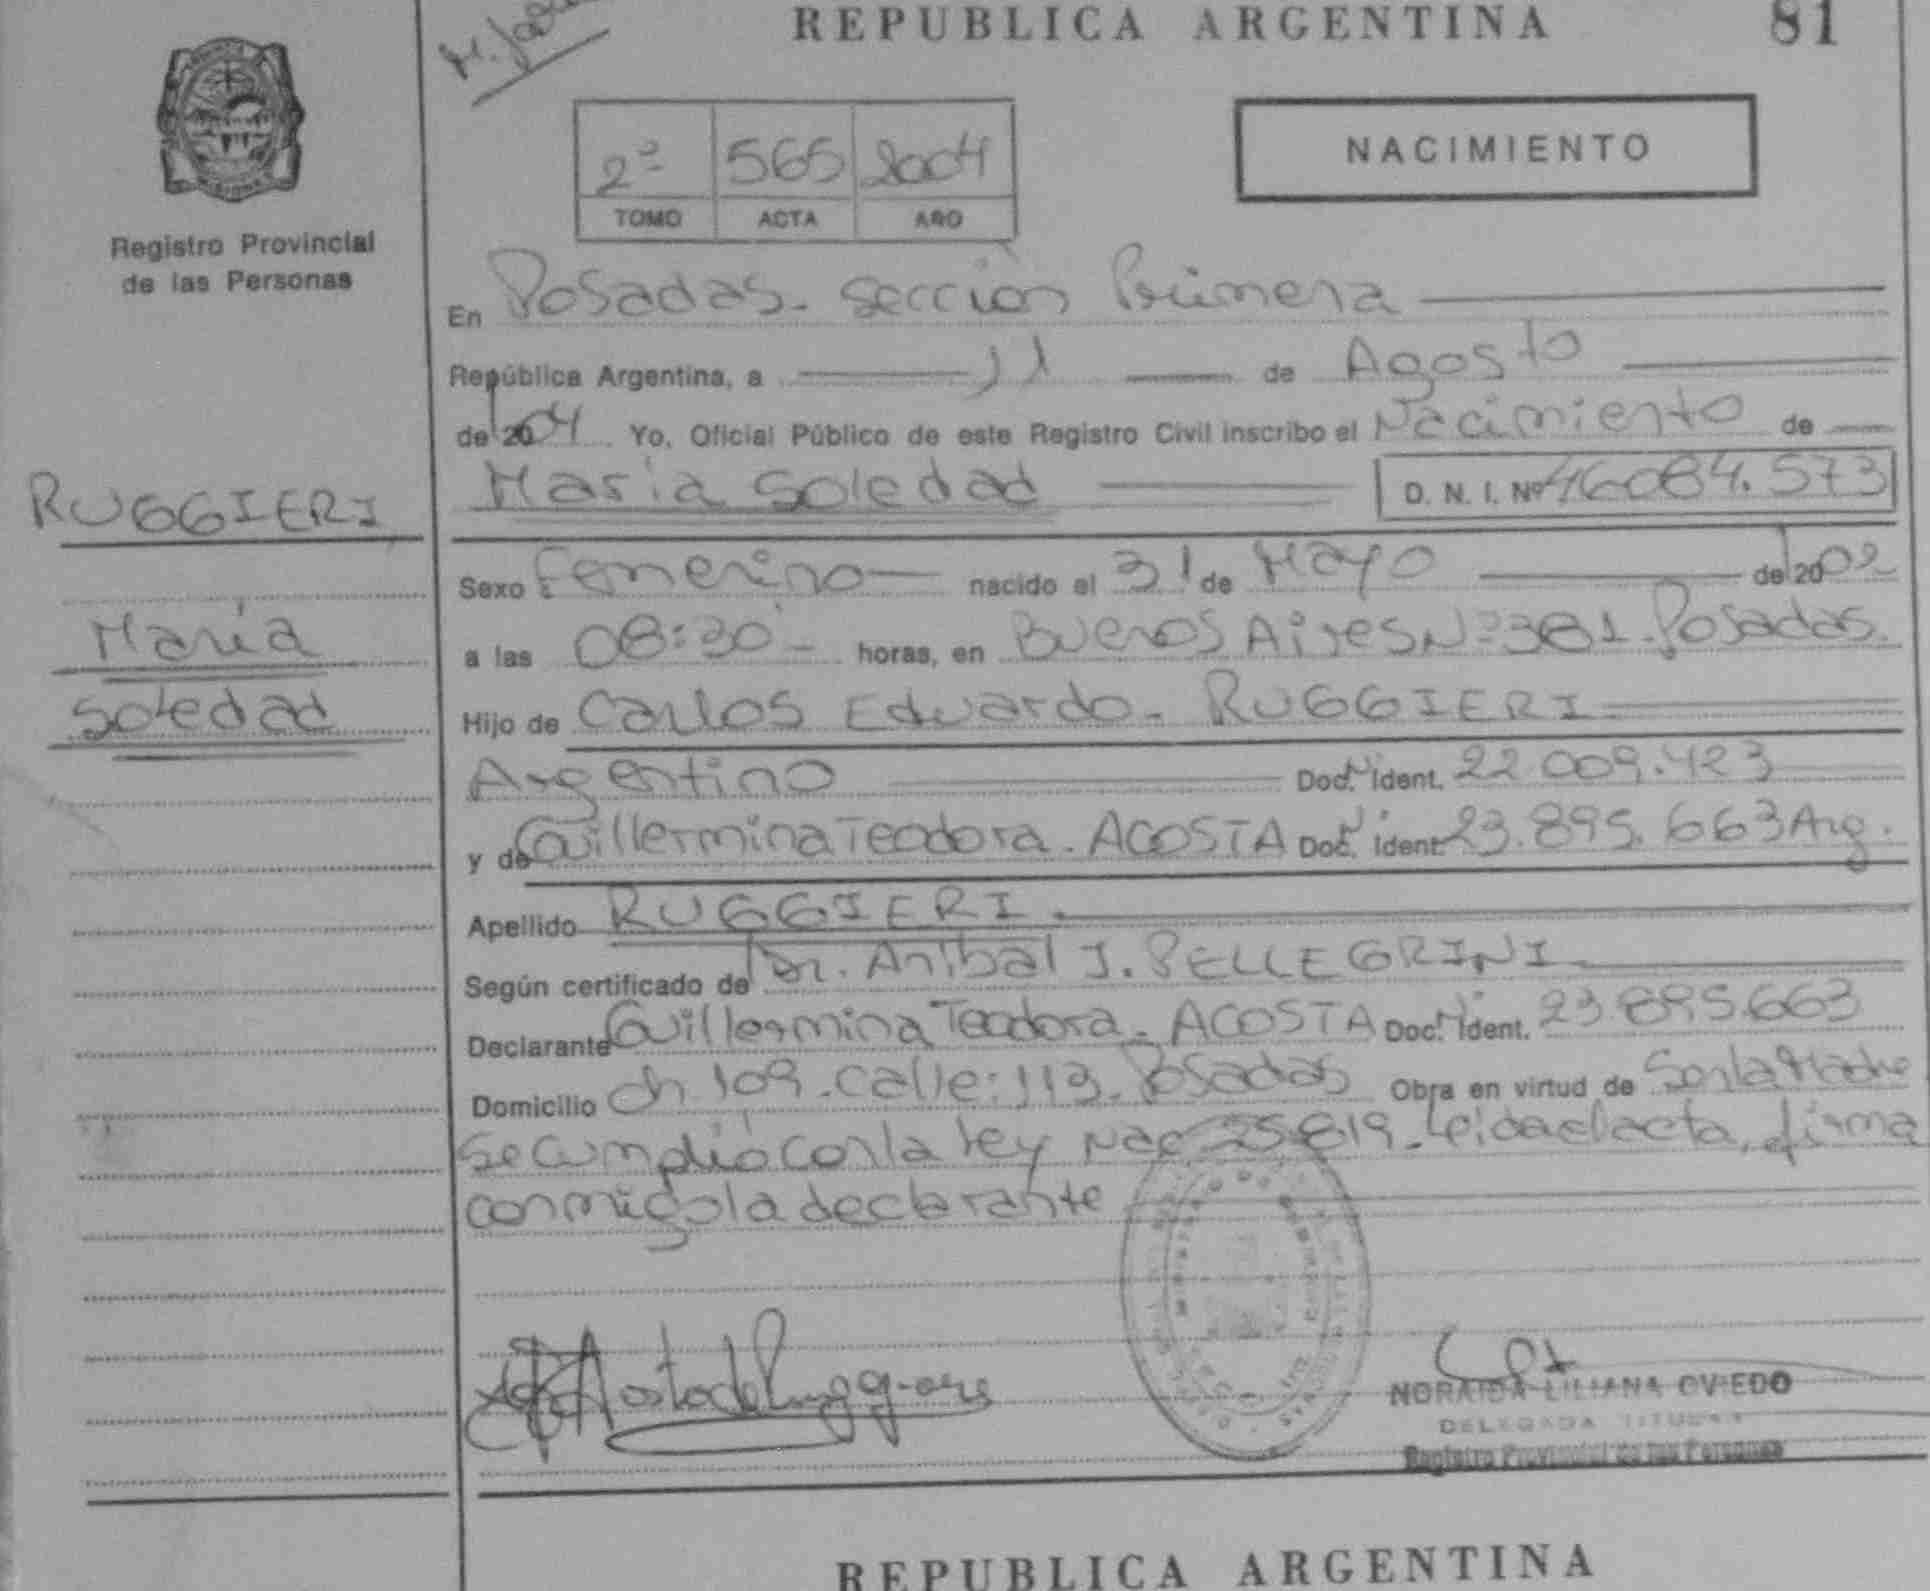 REPUBLICA ARGENTINA 81
Registro Provincial
de las Personas
2º 565 2004
TOMO ACTA AÑO
NACIMIENTO
En Posadas. Sección Primera
República Argentina, a 11 de Agosto
de 2004 Yo, Oficial Público de este Registro Civil inscribo el Nacimiento de
María Soledad D. N. I. Nº 46084.573
RUGGIERI
María
Soledad
Sexo Femenino nacido el 31 de Mayo de 2002
a las 08:30 horas, en Buenos Aires Nº 381. Posadas.
Hijo de Carlos Eduardo. RUGGIERI
Argentino Doc. Ident. 22 009.423
y de Guillermina Teodora. ACOSTA Doc. Ident. 23.895.663 Arg.
Apellido RUGGIERI.
Según certificado de Dr. Anibal J. PELLEGRINI
Declarante Guillermina Teodora. ACOSTA Doc. Ident. 23 895.663
Domicilio ch 109. calle: 113. Posadas Obra en virtud de Ser la Madre
Se cumplió con la ley Nac 25.819. Leida el acta, firma
conmigo la declarante
NORAIDA LILIANA OVIEDO
DELEGADA TITULAR
Registro Provincial de las Personas
REPUBLICA ARGENTINA